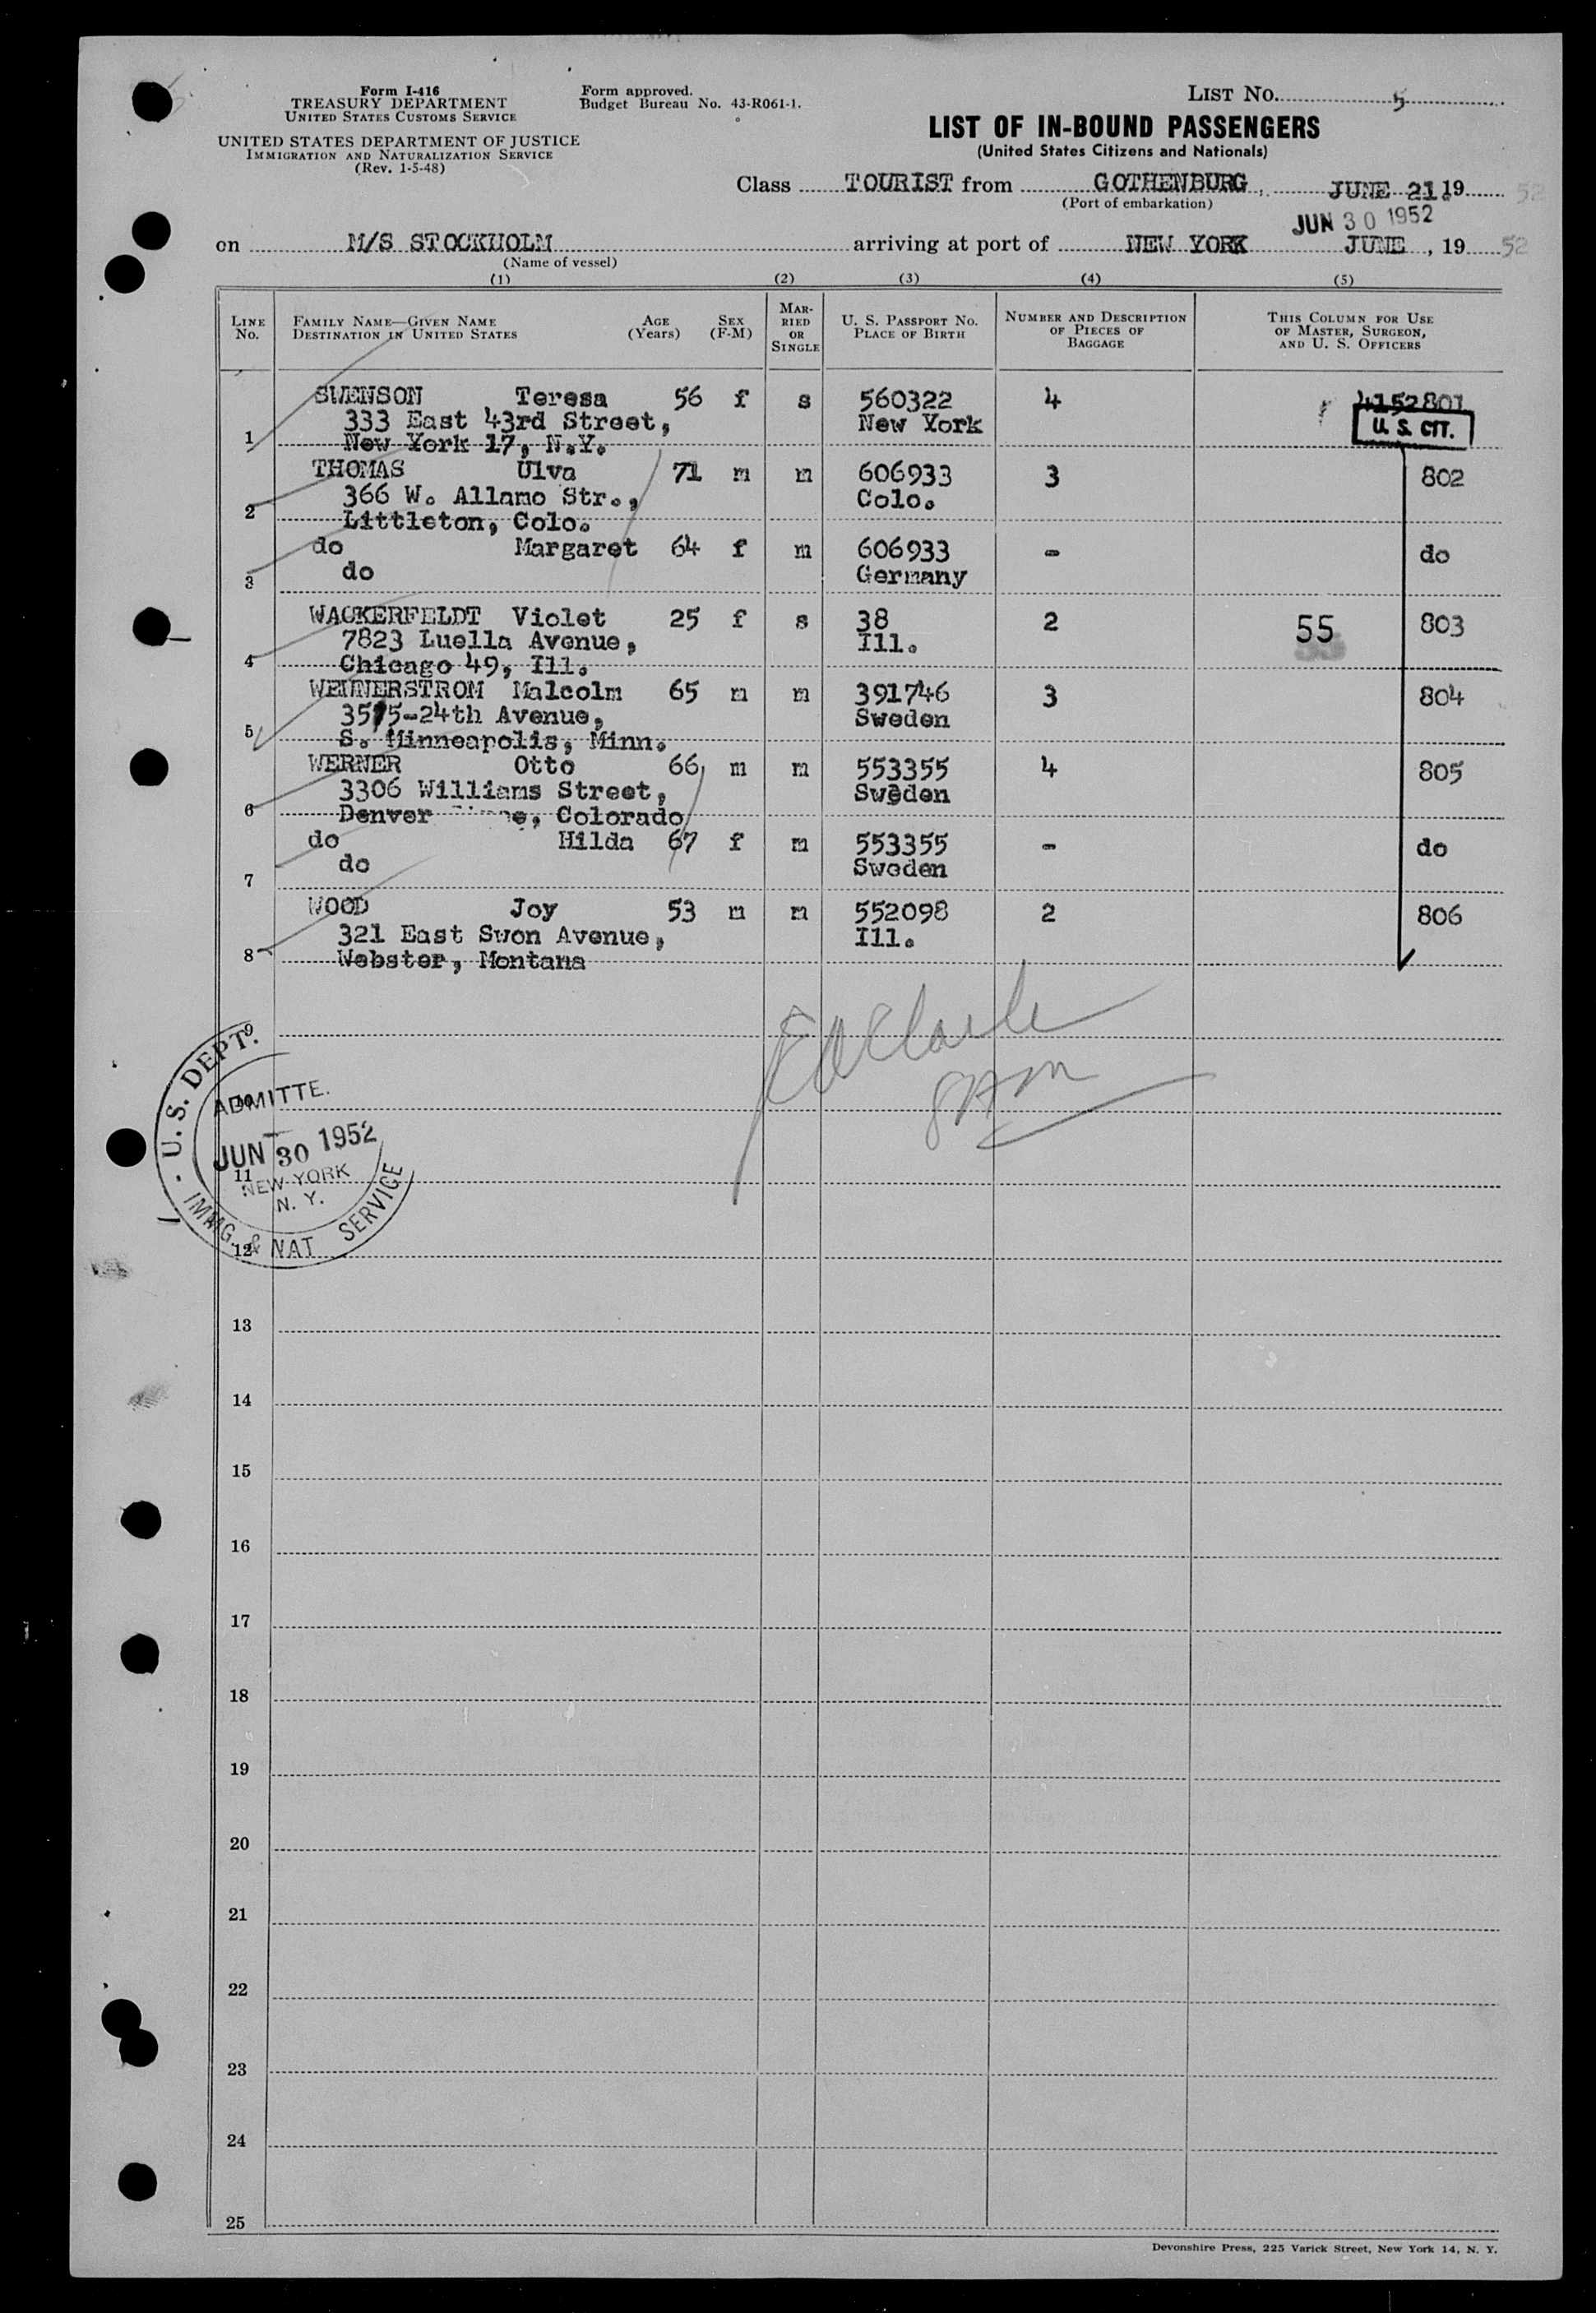 Form I-416
TREASURY DEPARTMENT
UNITED STATES CUSTOMS SERVICE
UNITED STATES DEPARTMENT OF JUSTICE
IMMIGRATION AND NATURALIZATION SERVICE
(Rev. 1-5-48)
Form approved.
Budget Bureau No. 43-R061-1.
LIST NO. 5
LIST OF IN-BOUND PASSENGERS
(United States Citizens and Nationals)
Class TOURIST from GOTHENBURG, JUNE 21. 19 52
(Port of embarkation)
JUN 30 1952
on M/S STOCKHOLM arriving at port of NEW YORK JUNE, 19 52
(Name of vessel)
(1) (2) (3) (4) (5)
LINE NO. FAMILY NAME—GIVEN NAME DESTINATION IN UNITED STATES AGE (Years) SEX (F-M) MARRIED OR SINGLE U. S. PASSPORT NO. PLACE OF BIRTH NUMBER AND DESCRIPTION OF PIECES OF BAGGAGE THIS COLUMN FOR USE OF MASTER, SURGEON, AND U. S. OFFICERS
SWENSON Teresa 56 f s 560322 4 4152801
333 East 43rd Street, New York U. S. CIT.
1 New York 17, N.Y.
THOMAS Ulva 71 m m 606933 3 802
366 W. Allamo Str., Colo.
2 Littleton, Colo.
do Margaret 64 f m 606933 - do
do Germany
3
WACKERFELDT Violet 25 f s 38 2 55 803
7823 Luella Avenue, Ill.
4 Chicago 49, Ill.
WENNERSTROM Malcolm 65 m m 391746 3 804
3515-24th Avenue, Sweden
5 S. Minneapolis, Minn.
WERNER Otto 66 m m 553355 4 805
3306 Williams Street, Sweden
6 Denver, Colorado
do Hilda 67 f m 553355 - do
do Sweden
7
WOOD Joy 53 m m 552098 2 806
321 East Swon Avenue, Ill.
8 Webster, Montana
9
10
11
12
U. S. DEPT.
ADMITTE.
JUN 30 1952
NEW YORK
N. Y.
IMMG. & NAT SERVICE
13
14
15
16
17
18
19
20
21
22
23
24
25
Devonshire Press, 225 Varick Street, New York 14, N. Y.